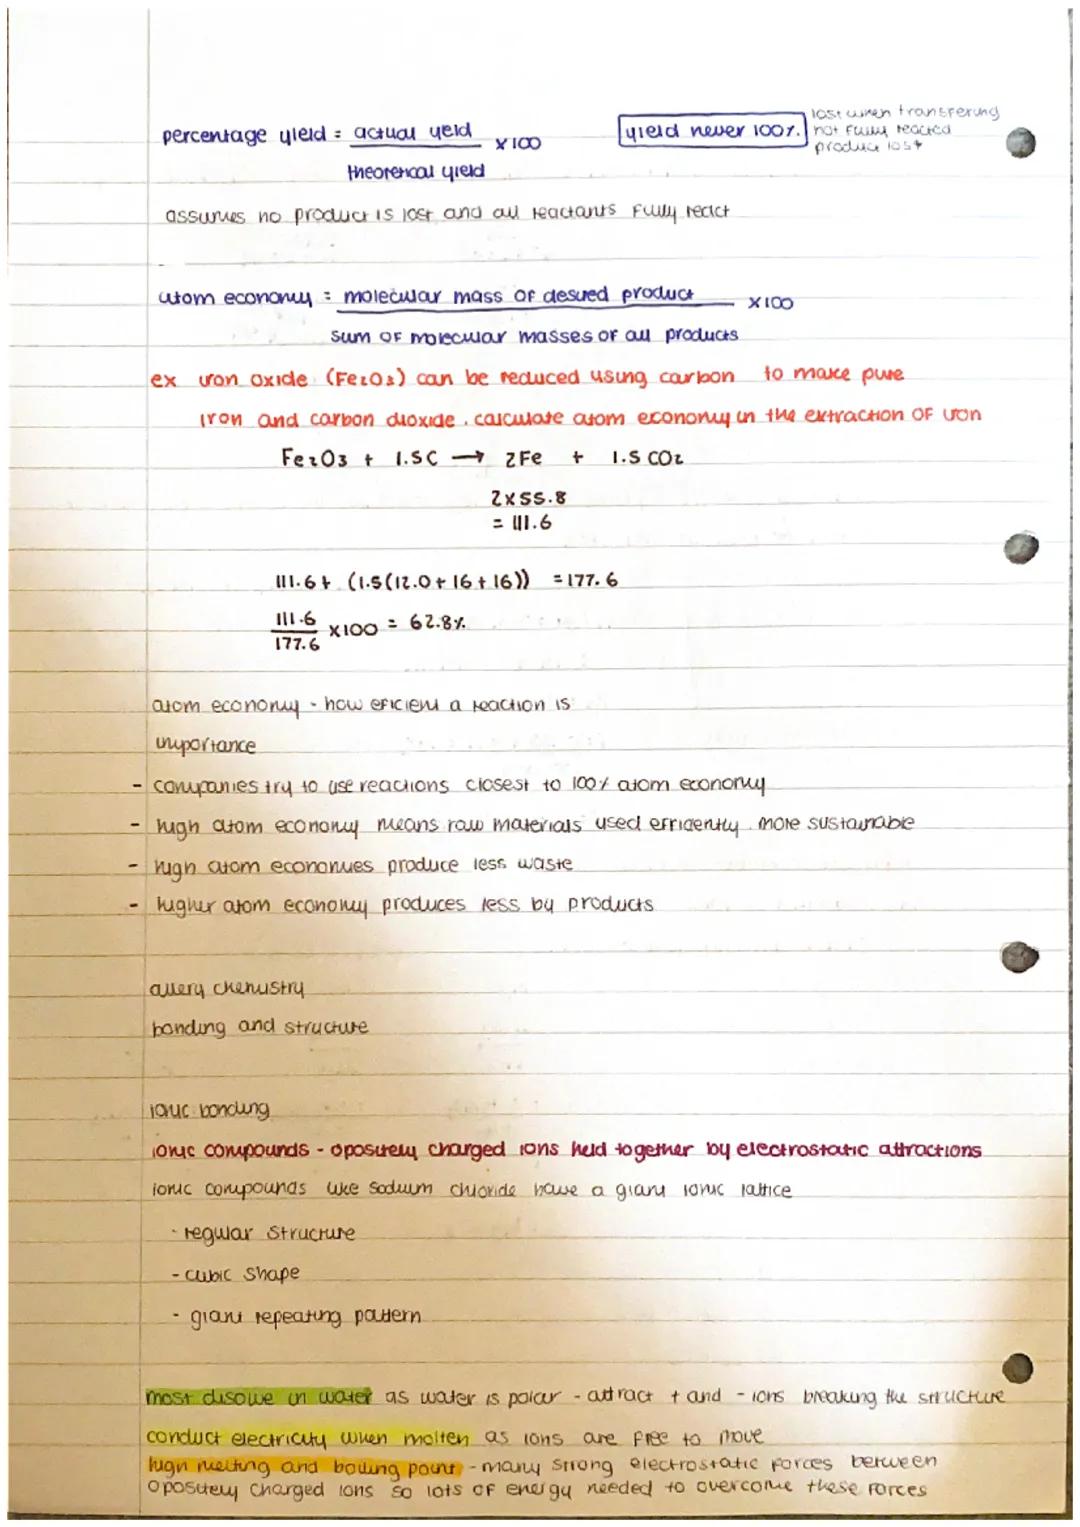 percentage yield = actual yeld x100
theoretical yield
yield never 100%.
lost when transfering
not fully reacted
product lost
assumes no product is lost and all reactants fully react
atom economy = molecular mass of desired product x100
sum of molecular masses of all products
ex iron oxide (Fe2O3) can be reduced using carbon to make pure
iron and carbon dioxide. calculate atom economy in the extraction of iron
Fe2O3 + 1.5C → 2Fe + 1.5 CO2
2x55.8
= 111.6
111.6+ (1.5(12.0+16+16)) = 177.6
111.6 x100 = 62.8%
177.6
atom economy - how eficient a reaction is
importance
- companies try to use reactions closest to 100% atom economy
- high atom economy means raw materials used efficiently. more sustainable
- high atom economies produce less waste
- higher atom economy produces less by products
allery chemistry
bonding and structure
ionic bonding
ionic compounds - opositely charged ions held together by electrostatic attractions
ionic compounds like sodium chloride have a giant ionic lattice
- regular structure
- cubic shape
- giant repeating pattern
most disolve in water as water is polar - attract + and - ions breaking the structure
conduct electricity when molten as ions are free to move
high melting and boiling point - many strong electrostatic forces between
opositely charged ions so lots of energy needed to overcome these forces